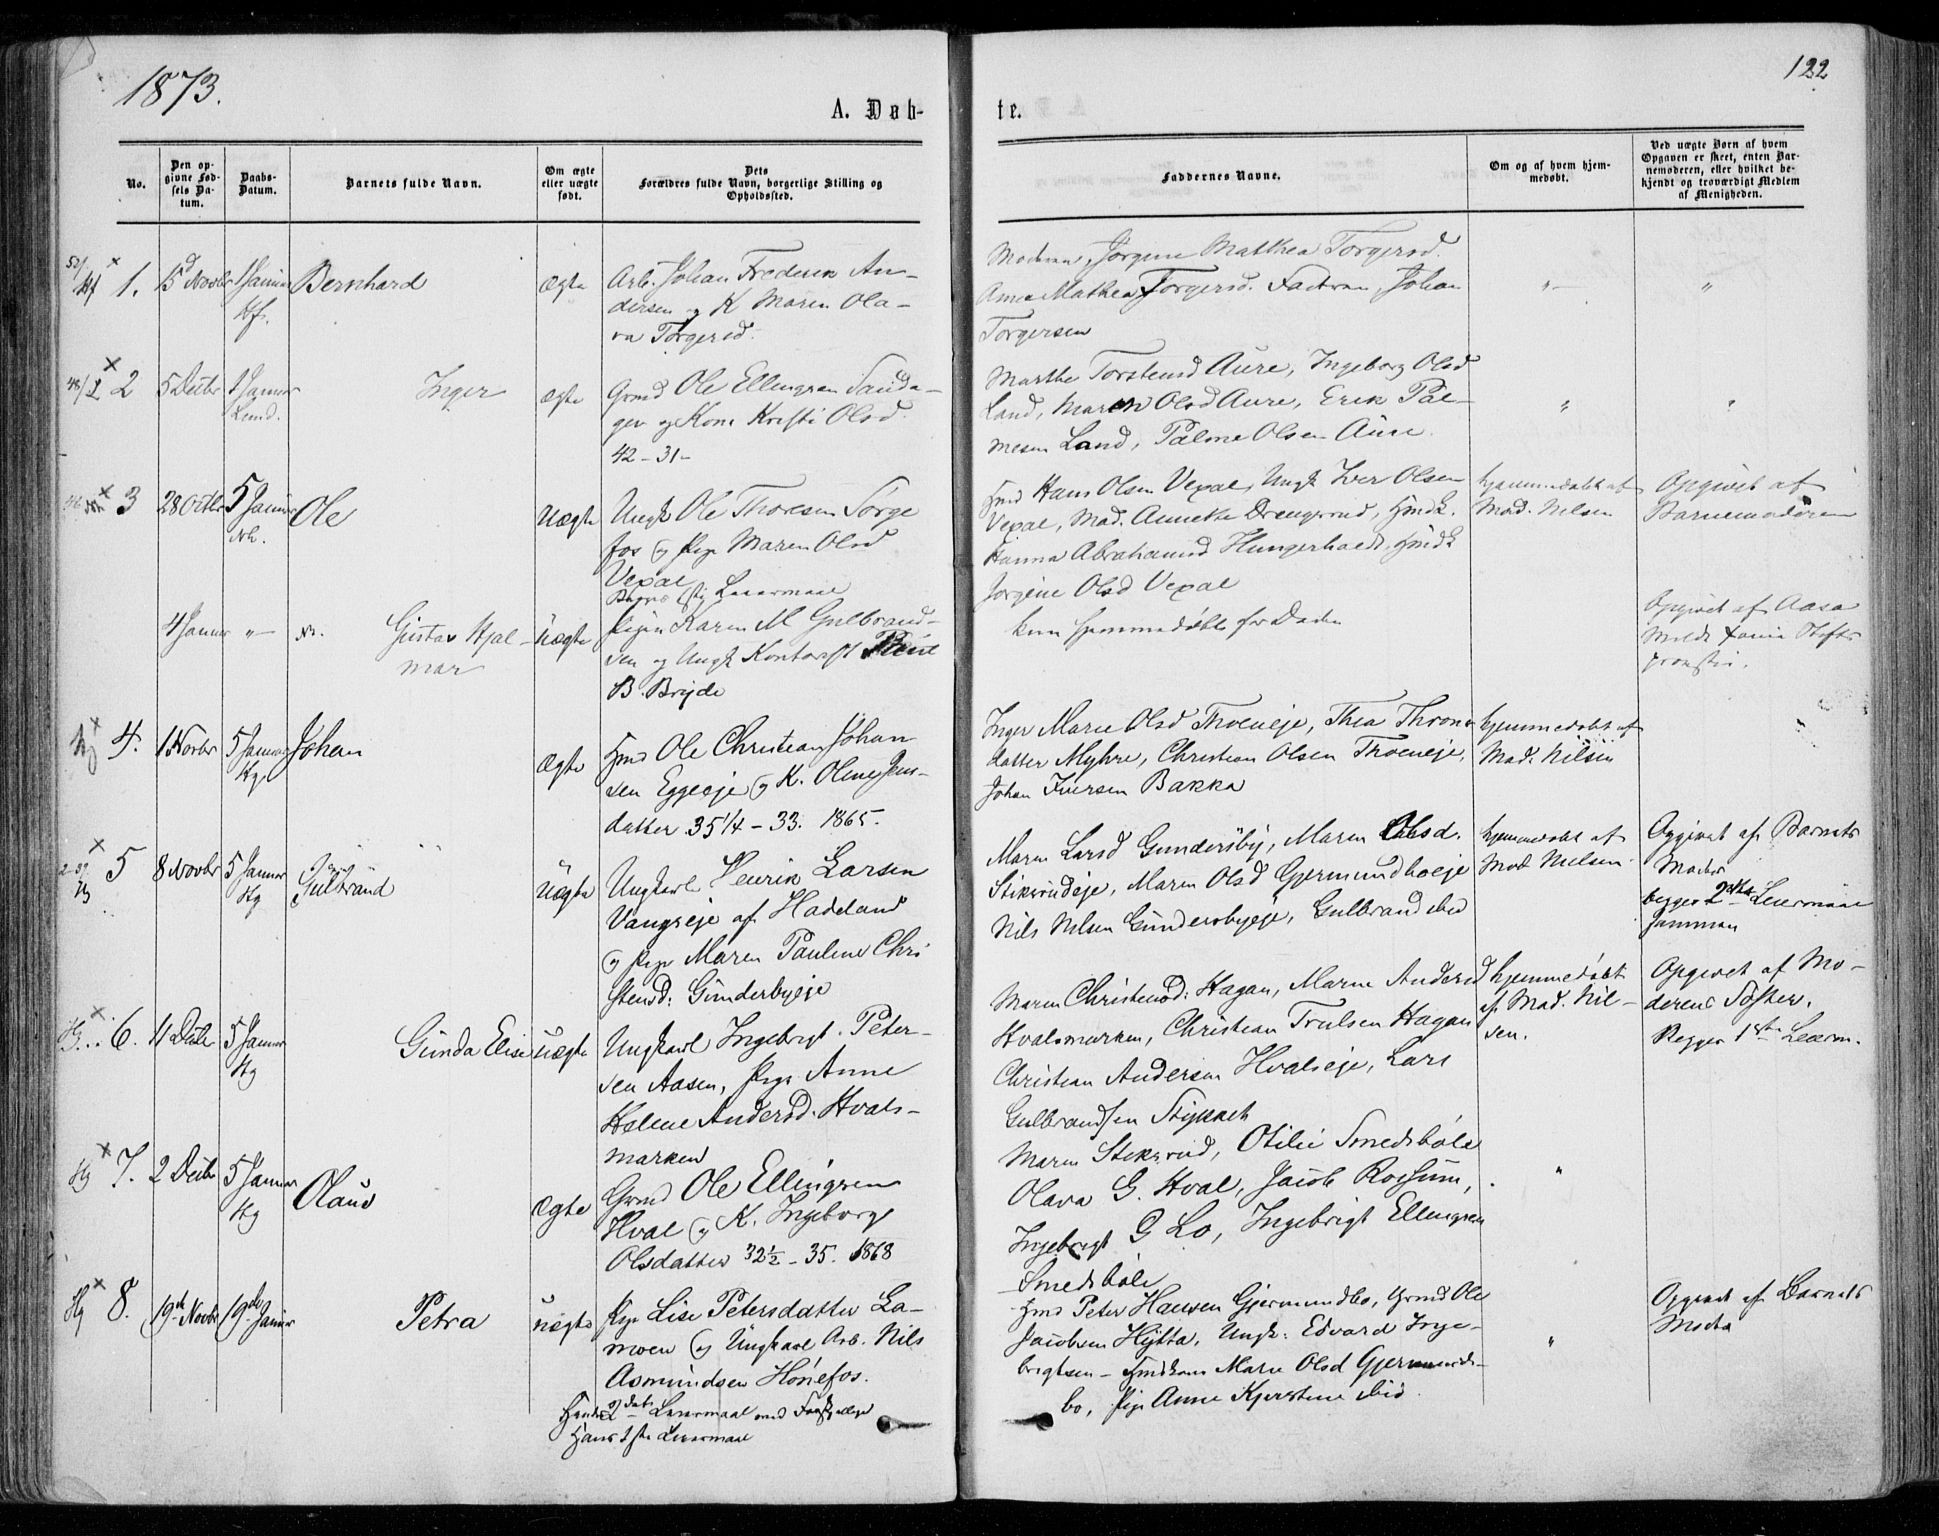 1873.
122
A. Døb-
te.
No.
Den op-
givne Fød-
sels Da-
tum.
Daabs-
Datum.
Barnets fulde Navn.
Om ægte
eller uægte
født.
Dets
Forældres fulde Navn, borgerlige Stilling og
Opholdssted.
Faddernes Navne.
Om og af hvem hjem-
medøbt.
Ved uægte Børn af hvem
Opgaven er skeet, enten Bar-
nemoderen, eller hvilket be-
kjendt og troværdigt Medlem
af Menigheden.
1. 15 Novbr 1 Januar Bernhard ægte Arb. Johan Frederik An-
Hf.
dersen og K Maren Ola-
va Torgersd.
Moderen, Jørgine Mathea Torgersd.
Anne Mathea Torgersd. Faderen, Johan
Torgersen
2 5 Decbr 1 Januar Inger ægte Grmd Ole Ellingsen Sanda-
Lund.
ger og Kone Kristi Olsd
42 - 31 -
Marthe Torstensd Aure, Ingeborg Olsd
Land, Maren Olsd Aure, Erik Pal-
mesen Land, Palme Olsen Aure.
3 28 Octbr 5 Januar Ole Uægte Ungk Ole Thoresen Sørge
fos og Pige Maren Olsd
Vexal
Hmd Hans Olsen Vexal, Ungk Iver Olsen
Vexal, Mad. Annethe Drengsrud, Hmdk.
Hanna Abrahamsd Hungerholdt, Hmdk
Jørgine Olsd Vexal
hjemmedøbt af
Mad. Nilsen
Opgivet af
Barnemoderen
4 Januar Gustav Hjal- uægte Pigen Karen M Gulbrand-
mar
sen og Ungk Kontorist
B. Bryde
kun hjemmedøbt før Døden
Opgivet af Aasa
4. 1 Novbr 5 Januar Johan ægte Hmd Ole Christian Johan
Hg.
sen Eggeeje og K. Oline Jens-
datter 35 1/4 - 33. 1865.
Inger Marie Olsd Thoeneje, Thea Thrond
datter Myhre, Christian Olsen Thoeneje,
Johan Iversen Bakka
hjemmedøbt af
Mad. Nilsen
5 8 Novbr 5 Januar Gulbrand Uægte Ungkarl Henrik Larsen
Hg
Vangseje af Hadeland
og Pige Maren Pauline Chri
stensd: Gunderbyeje
Maren Larsd Gundersby, Maren Olsd.
Stiksrudeje, Maren Olsd Gjermundboeje
Nils Nilsen Gundersbyeje, Gulbrand ibid
hjemmedøbt af
Mad Nilsen
Opgivet af Barnets
Moder
begges 2det Leiermaal
sammen
6. 11 Decbr 5 Januar Gunda Elise uægte Ungkarl Ingebrigt Peter-
Hg
sen Aasen, Pige Anne
Helene Andersd. Hvals-
marken
Maren Christensd: Hagan, Maren Andersd
Hvalsmarken, Christian Trulsen Hagan
Christian Andersen Hvalseje, Lars
Gulbrandsen
hjemmedøbt
af Mad. Nil-
sen.
Opgivet af Mo-
derens Søster.
Begges 1ste Leierm.
Hg 7. 2 Decbr 5 Januar Olaus ægte Grmd Ole Ellingsen
Hg
Hval og K. Ingeborg
Olsdatter 32 1/2 - 35. 1868
Maren Stiksrud, Otilie Smedsbøle
Olava G. Hval, Jacob Rossum,
Ingebrigt G Lo, Ingebrigt Ellingsen
Smedsbøle
Hg 8. 19de Novbr 19de Januar Petra uægte Pige Lise Petersdatter La-
moen og Ungkarl Arb. Nils
Asmundsen Hønefos.
Hendes 2det Leiermaal
Hans 1ste Leiermaal
Hmd Peter Hansen Gjermundbo, Grmd Ole
Jacobsen Hytta, Ungk: Edvard Inge-
brigtsen - Hmdkone Marie Olsd Gjermunds-
bo, Pige Anne Kjerstine ibid.
Opgivet af Barnets
Moder